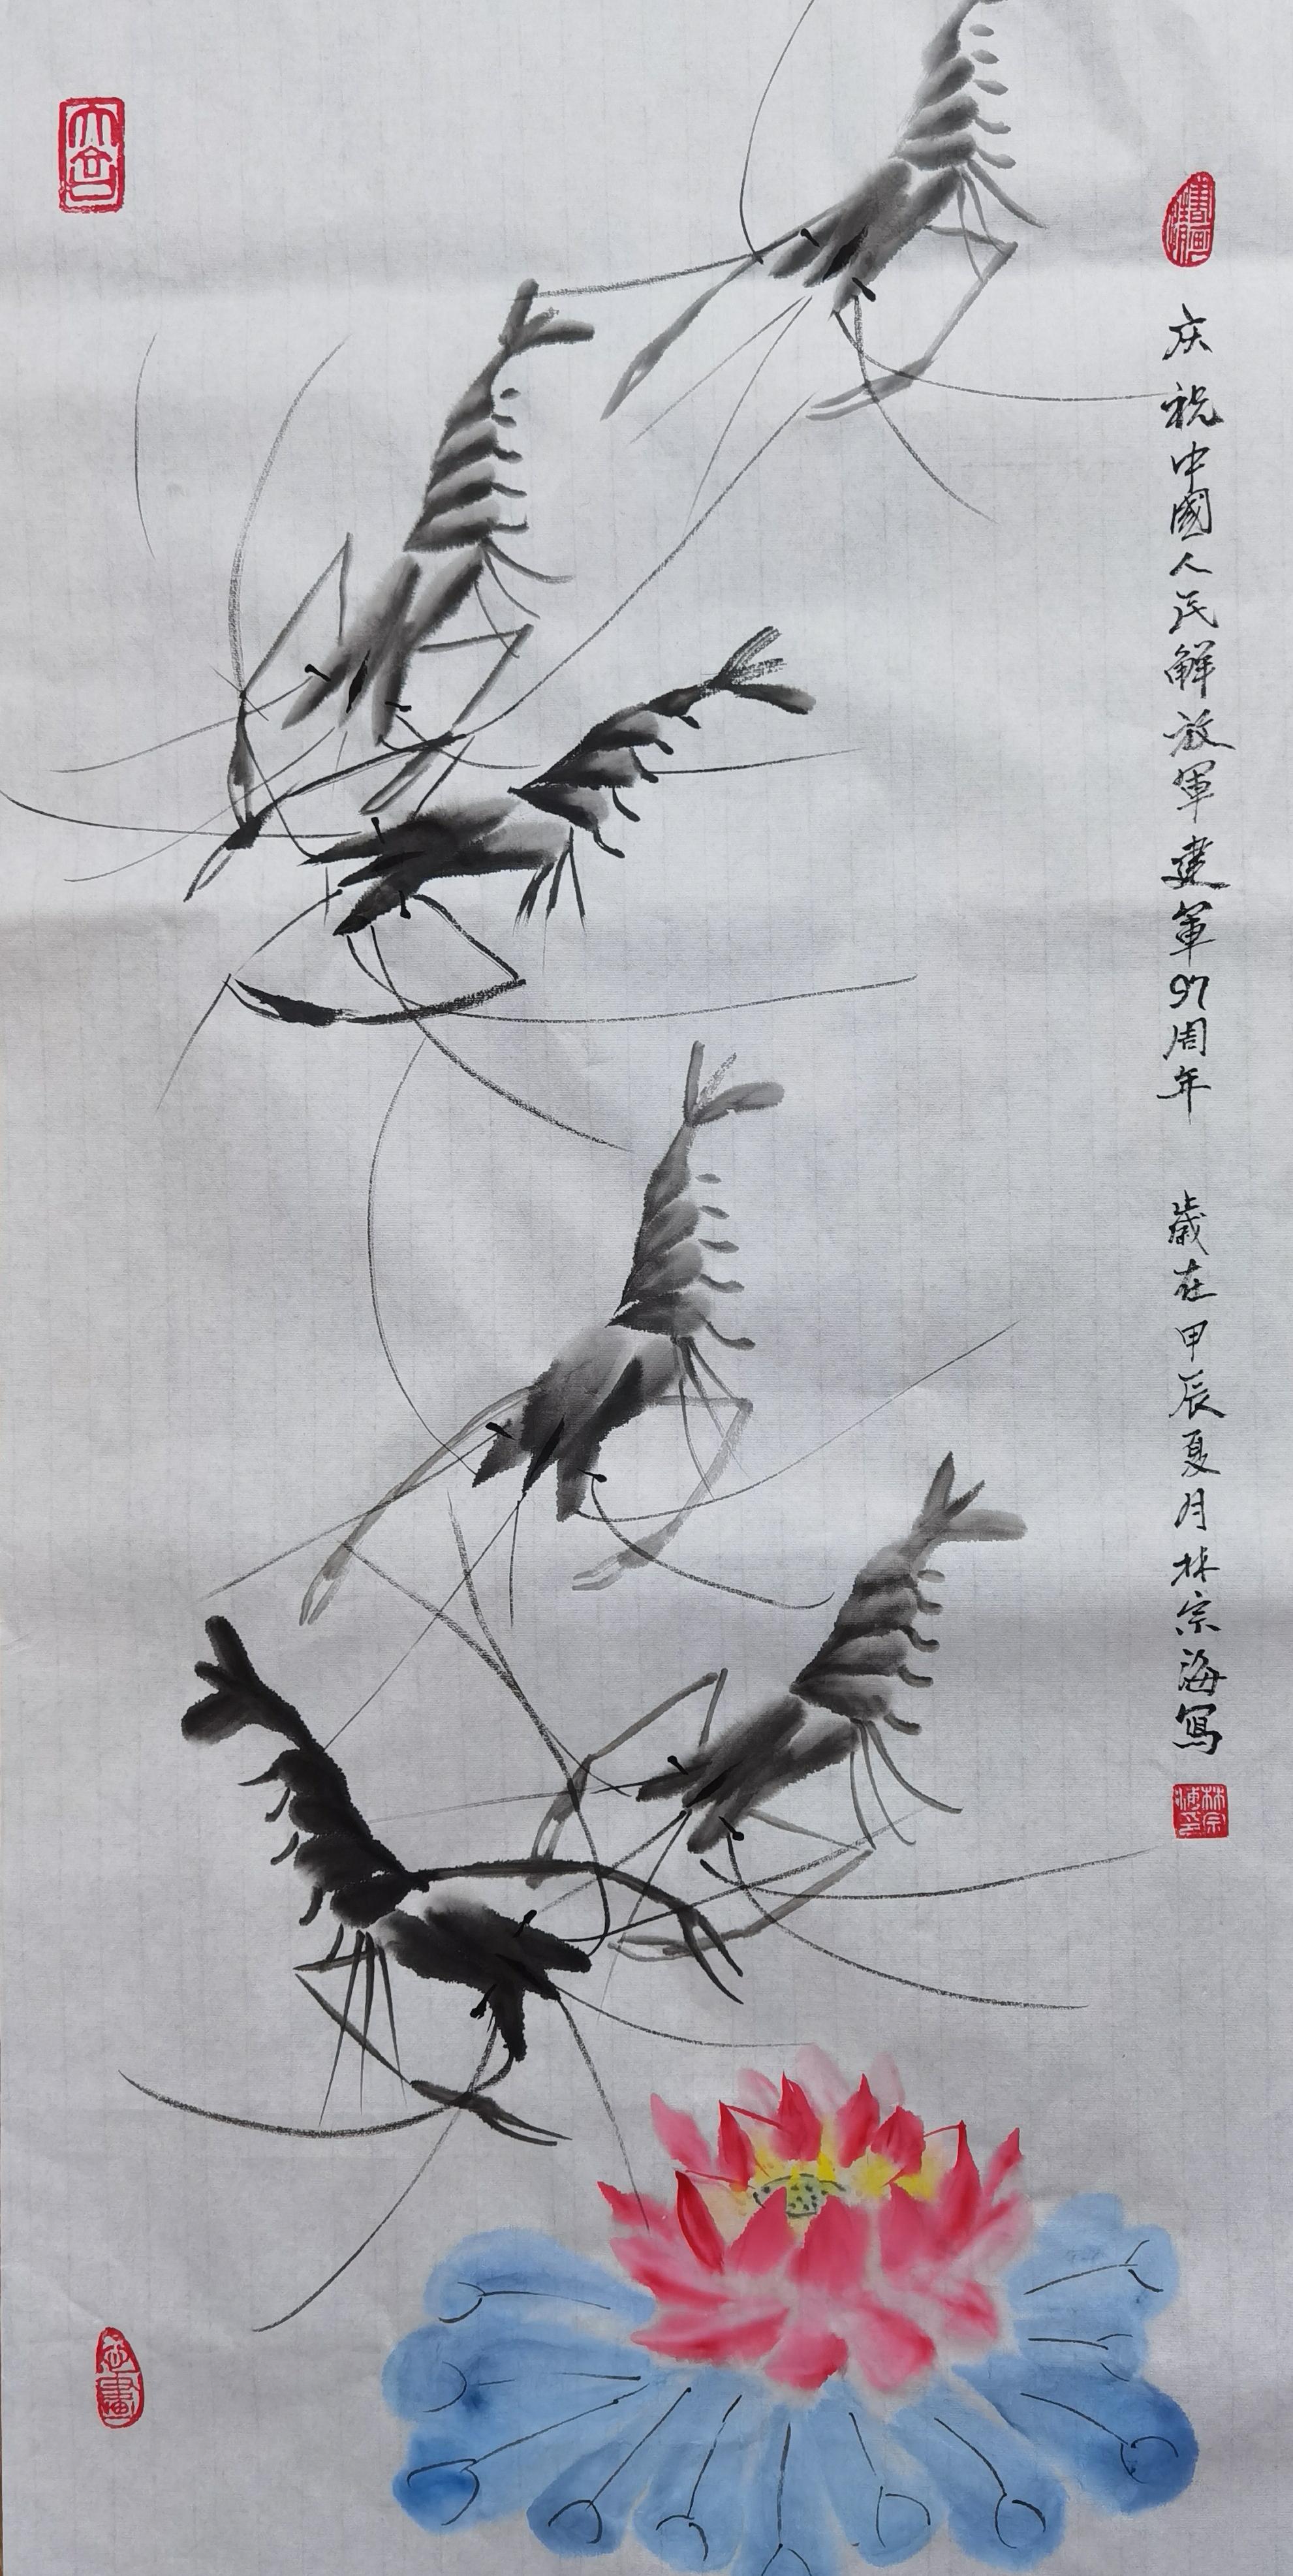 庆祝中國人民解放軍建軍97周年 歲在甲辰夏月林宗海寫
林宗海印